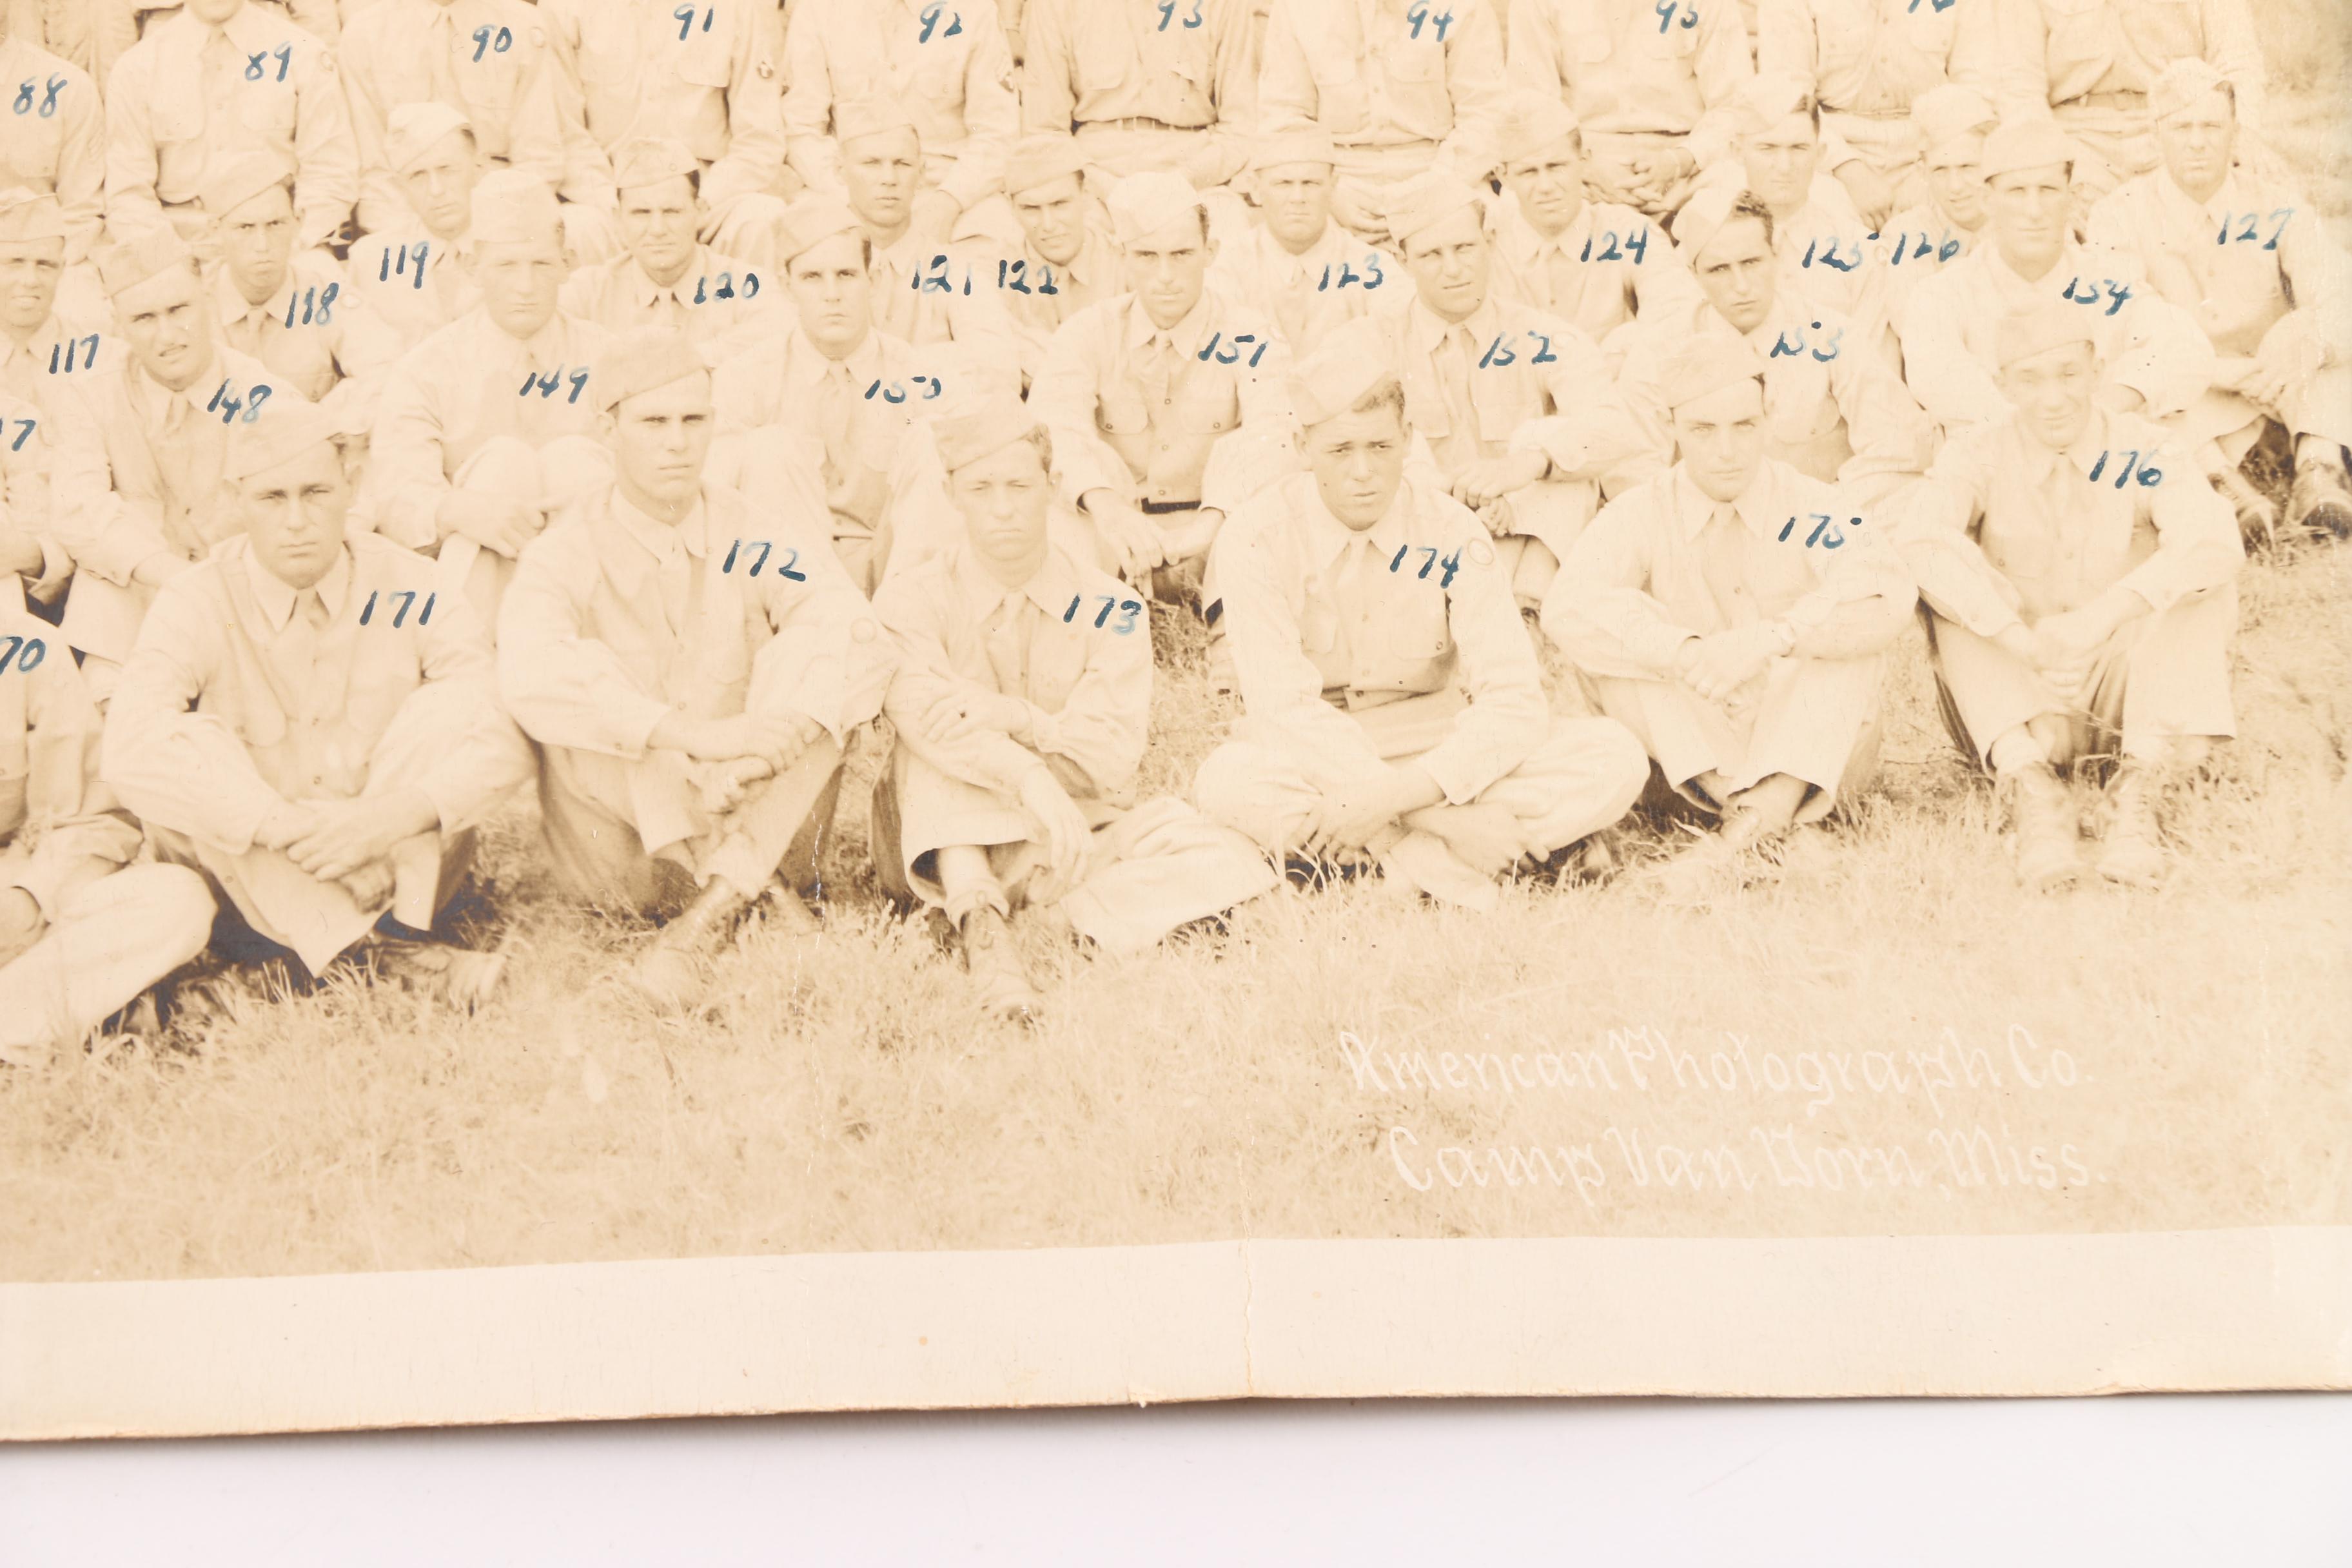 88 89 90 91 92 93 94 95
117 118 119 120 121 122 123 124 125 126 127
148 149 150 151 152 153 154
170 171 172 173 174 175 176
American Photograph Co.
Camp Van Dorn, Miss.